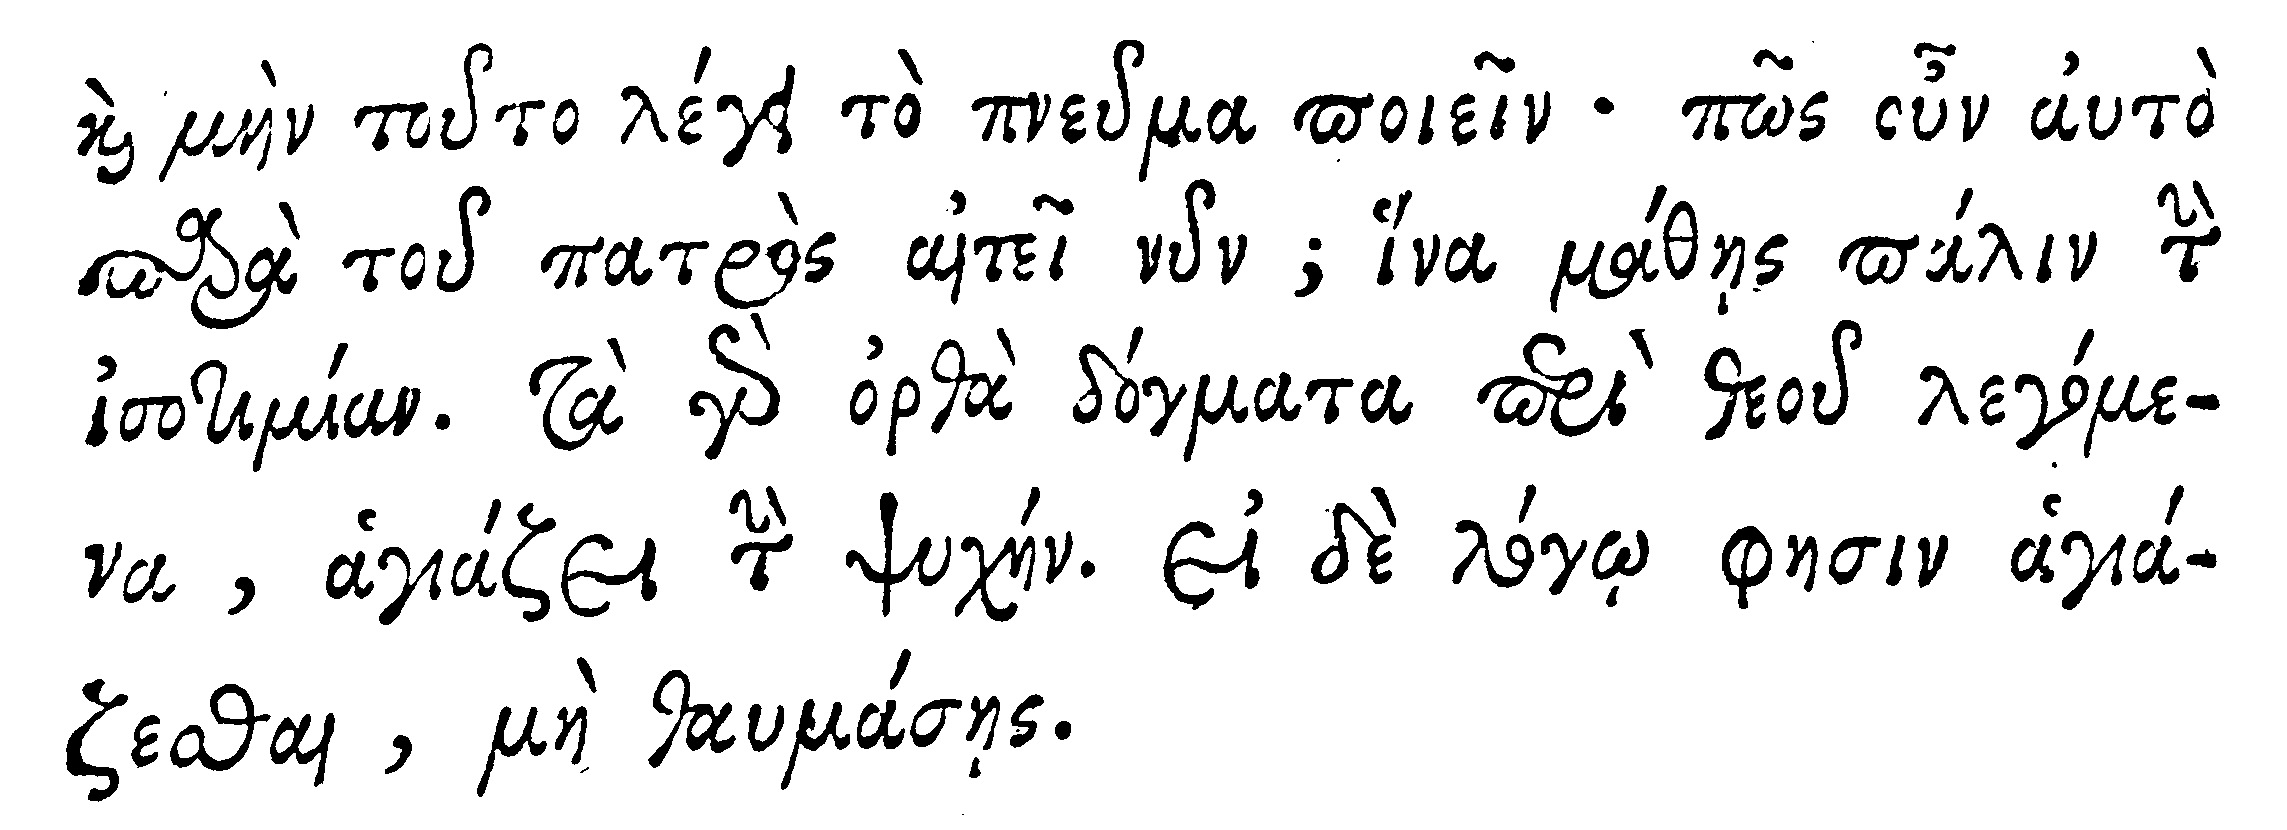 καὶ μὴν τοῦτο λέγει τὸ πνεῦμα ποιεῖν · πῶς οὖν αὐτὸ
παρὰ τοῦ πατρὸς αἰτεῖ νῦν ; ἵνα μάθῃς πάλιν τὴν
ἰσοτιμίαν. Τὰ γὰρ ὀρθὰ δόγματα περὶ θεοῦ λεγόμε-
να , ἁγιάζει τὴν ψυχήν. εἰ δὲ λόγῳ φησιν ἁγιά-
ζεσθαι , μὴ θαυμάσῃς.